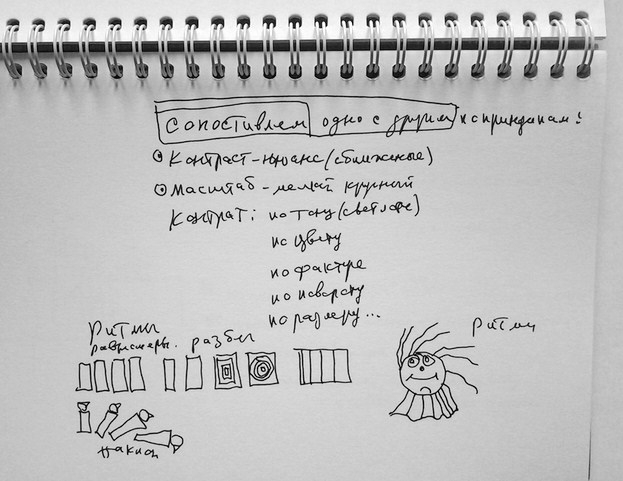 сопоставляем одно с другим по принципам:
Контраст-нюанс (сближеные)
Масштаб - мелкий крупный
Контраст: по тону (светлоте)
по цвету
по фактуре
по повороту
по размеру...
Ритмы
равномерн. разбег
Ритмы
наклон